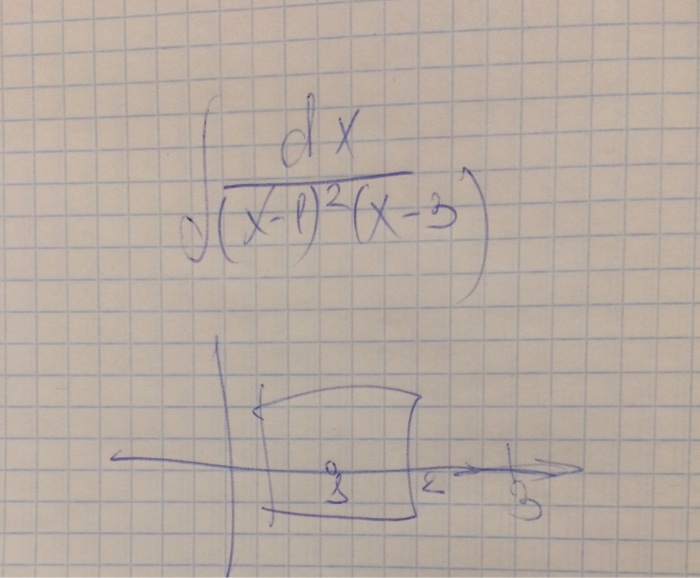 ∫ dx
(x-1)²(x-3)
1 2 3